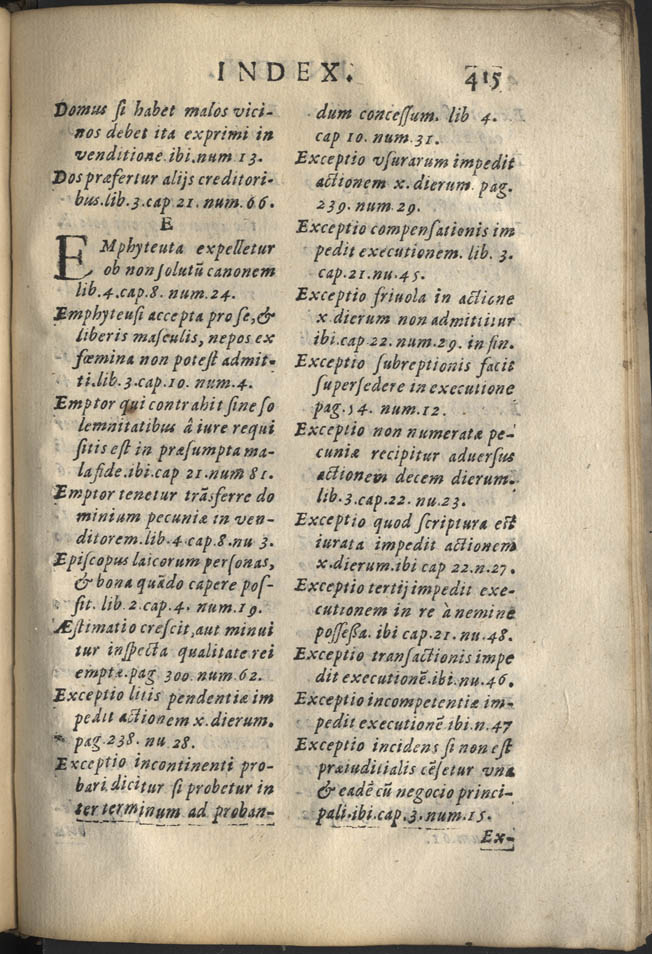 INDEX. 415
Domus ſi habet malos vici-
nos debet ita exprimi in
venditione.ibi.num 13.
Dos præfertur alijs creditori-
bus.lib.3.cap.21.num.66.
E
EMphyteuta expelletur
ob non ſolutũ canonem
lib.4.cap.8. num.24.
Emphyteuſi accepta pro ſe,&
liberis maſculis, nepos ex
fœmina non poteſt admit-
ti.lib.3.cap.10. num.4.
Emptor qui contrahit ſine ſo
lemnitatibus â iure requi
ſitis eſt in præſumpta ma-
la fide.ibi.cap 21.num 81.
Emptor tenetur trãsferre do
minium pecuniæ in ven-
ditorem.lib.4.cap.8.nu 3.
Epiſcopus laicorum perſonas,
& bona quãdo capere poſ-
ſit. lib.2.cap.4. num.19.
Æſtimatio creſcit,aut minui
tur inſpecta qualitate rei
emptæ.pag 300.num 62.
Exceptio litis pendentiæ im
pedit actionem x.dierum.
pag.238. nu 28.
Exceptio incontinenti pro-
bari dicitur ſi probetur in
ter terminum ad proban-
dum conceſſum. lib 4.
cap 10. num.31.
Exceptio vſurarum impedit
actionem x.dierum. pag.
239. num.29.
Exceptio compenſationis im
pedit executionem. lib. 3.
cap.21.nu.45.
Exceptio friuola in actione
x.dierum non admittitur
ibi.cap 22.num.29. in fin.
Exceptio ſubreptionis facit
ſuperſedere in executione
pag.54. num.12.
Exceptio non numeratæ pe-
cuniæ recipitur aduerſus
actionem decem dierum.
lib.3.cap.22. nu.23.
Exceptio quod ſcriptura eſt
iurata impedit actionem
x.dierum.ibi cap 22.n.27.
Exceptio tertij impedit exe-
cutionem in re à nemine
poſſeſſa. ibi cap.21.nu.48.
Exceptio tranſactionis impe
dit executionẽ.ibi.nu.46.
Exceptio incompetentiæ im-
pedit executionẽ ibi.n.47
Exceptio incidens ſi non eſt
præiuditialis cẽſetur vna
& eadẽ cũ negocio princi-
pali.ibi.cap.3.num.15.
Ex-